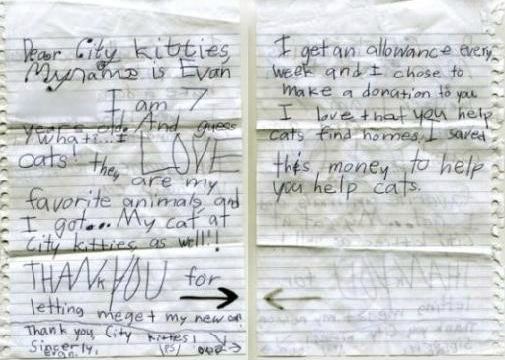 Dear City kitties
My name is Evan
I am 7
years old. And guess
what... I LOVE
cats! they are my
favorite animals and
I got... My cat at
City kitties as well!!
THANK YOU for
letting me get my new cat
Thank you, City kitties!
Sincerly,
Evan
I get an allowance every
week and I chose to
make a donation to you
I love that you help
cats find homes. I saved
this money to help
you help cats.